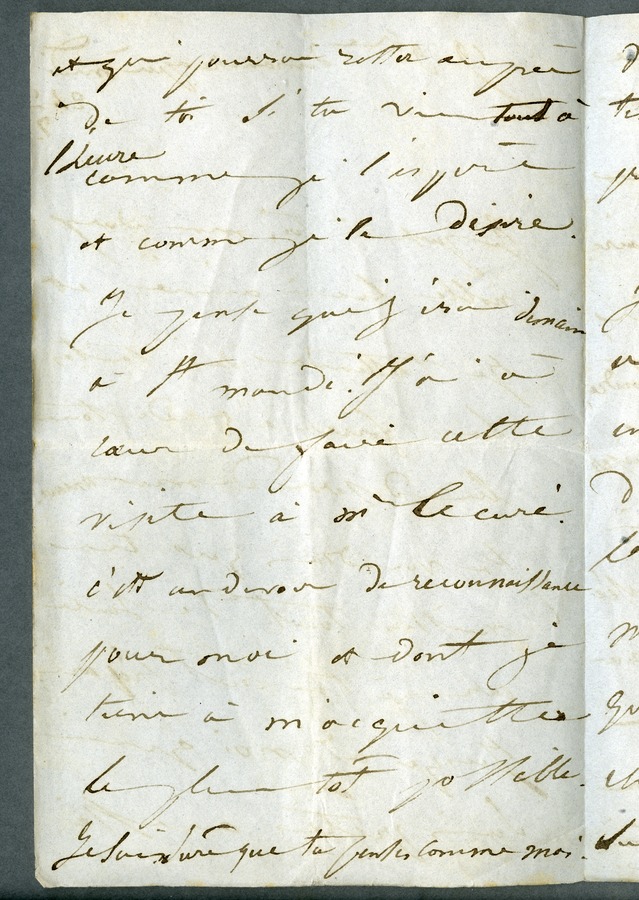 et qui pourra rester auprès
de toi si tu viens tout à
l'heure
comme je l'espère
et comme je le désire.
Je pense que j'irai demain
à St mandé. J'ai à
cœur de faire cette
visite à mr le curé.
c'est un devoir de reconnaissance
pour moi et dont je
tiens à m'acquitter
le plus tôt possible.
Je suis sure que tu penses comme moi.